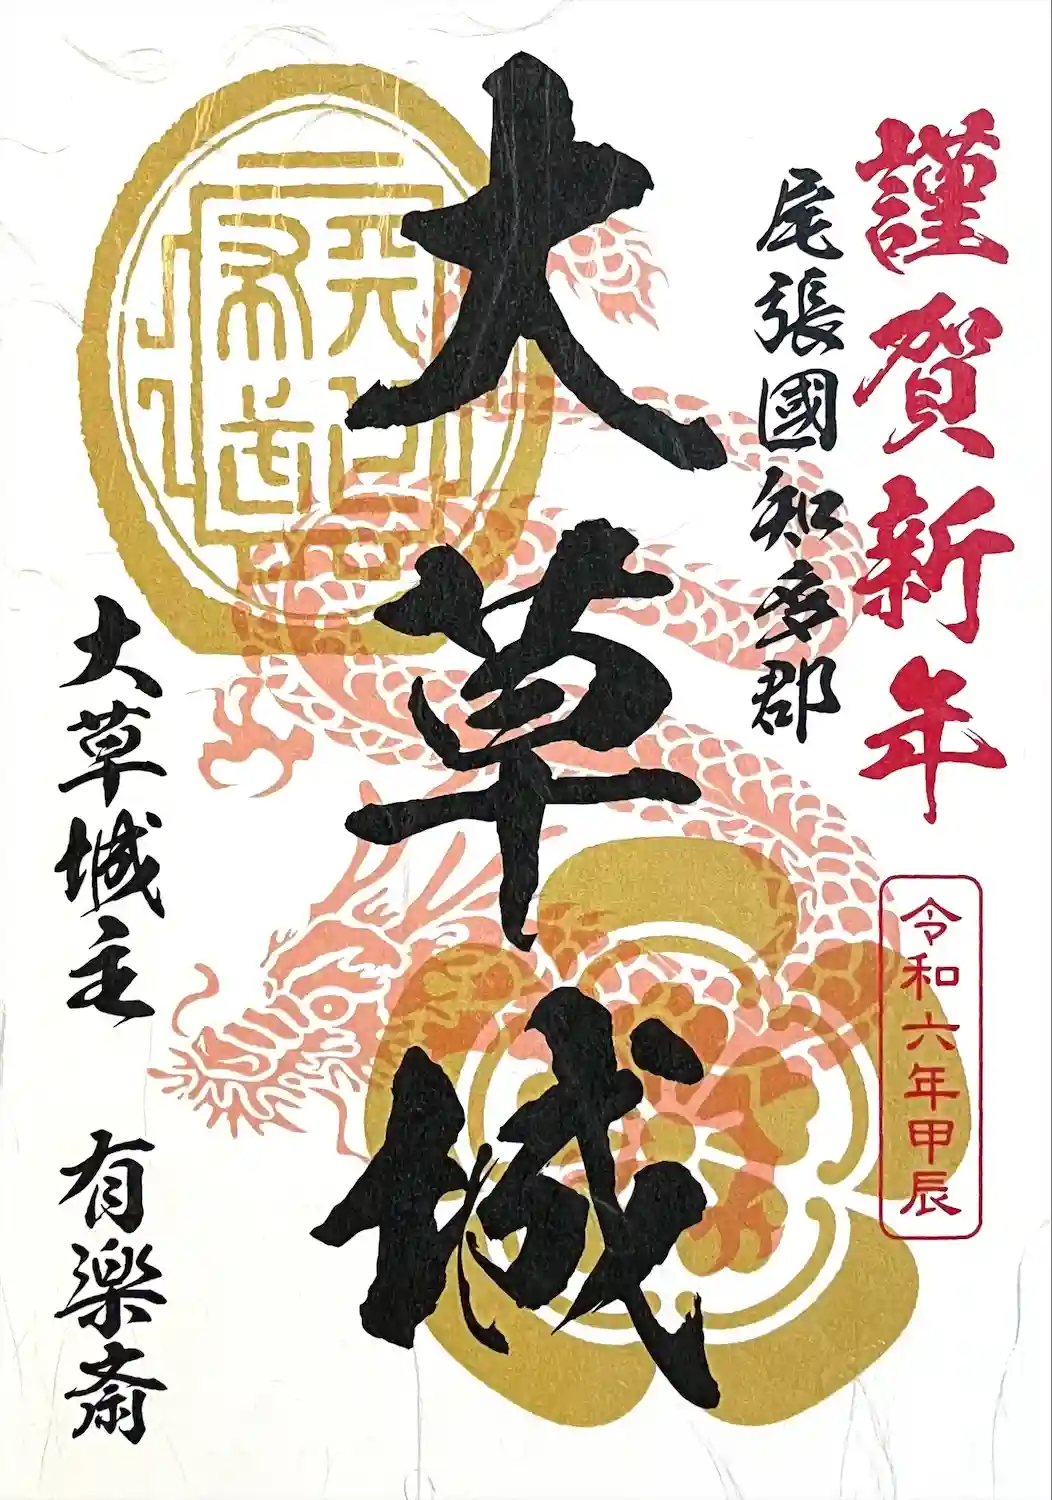 謹賀新年
令和六年甲辰
尾張國知多郡
大草城
大草城主 有楽斎